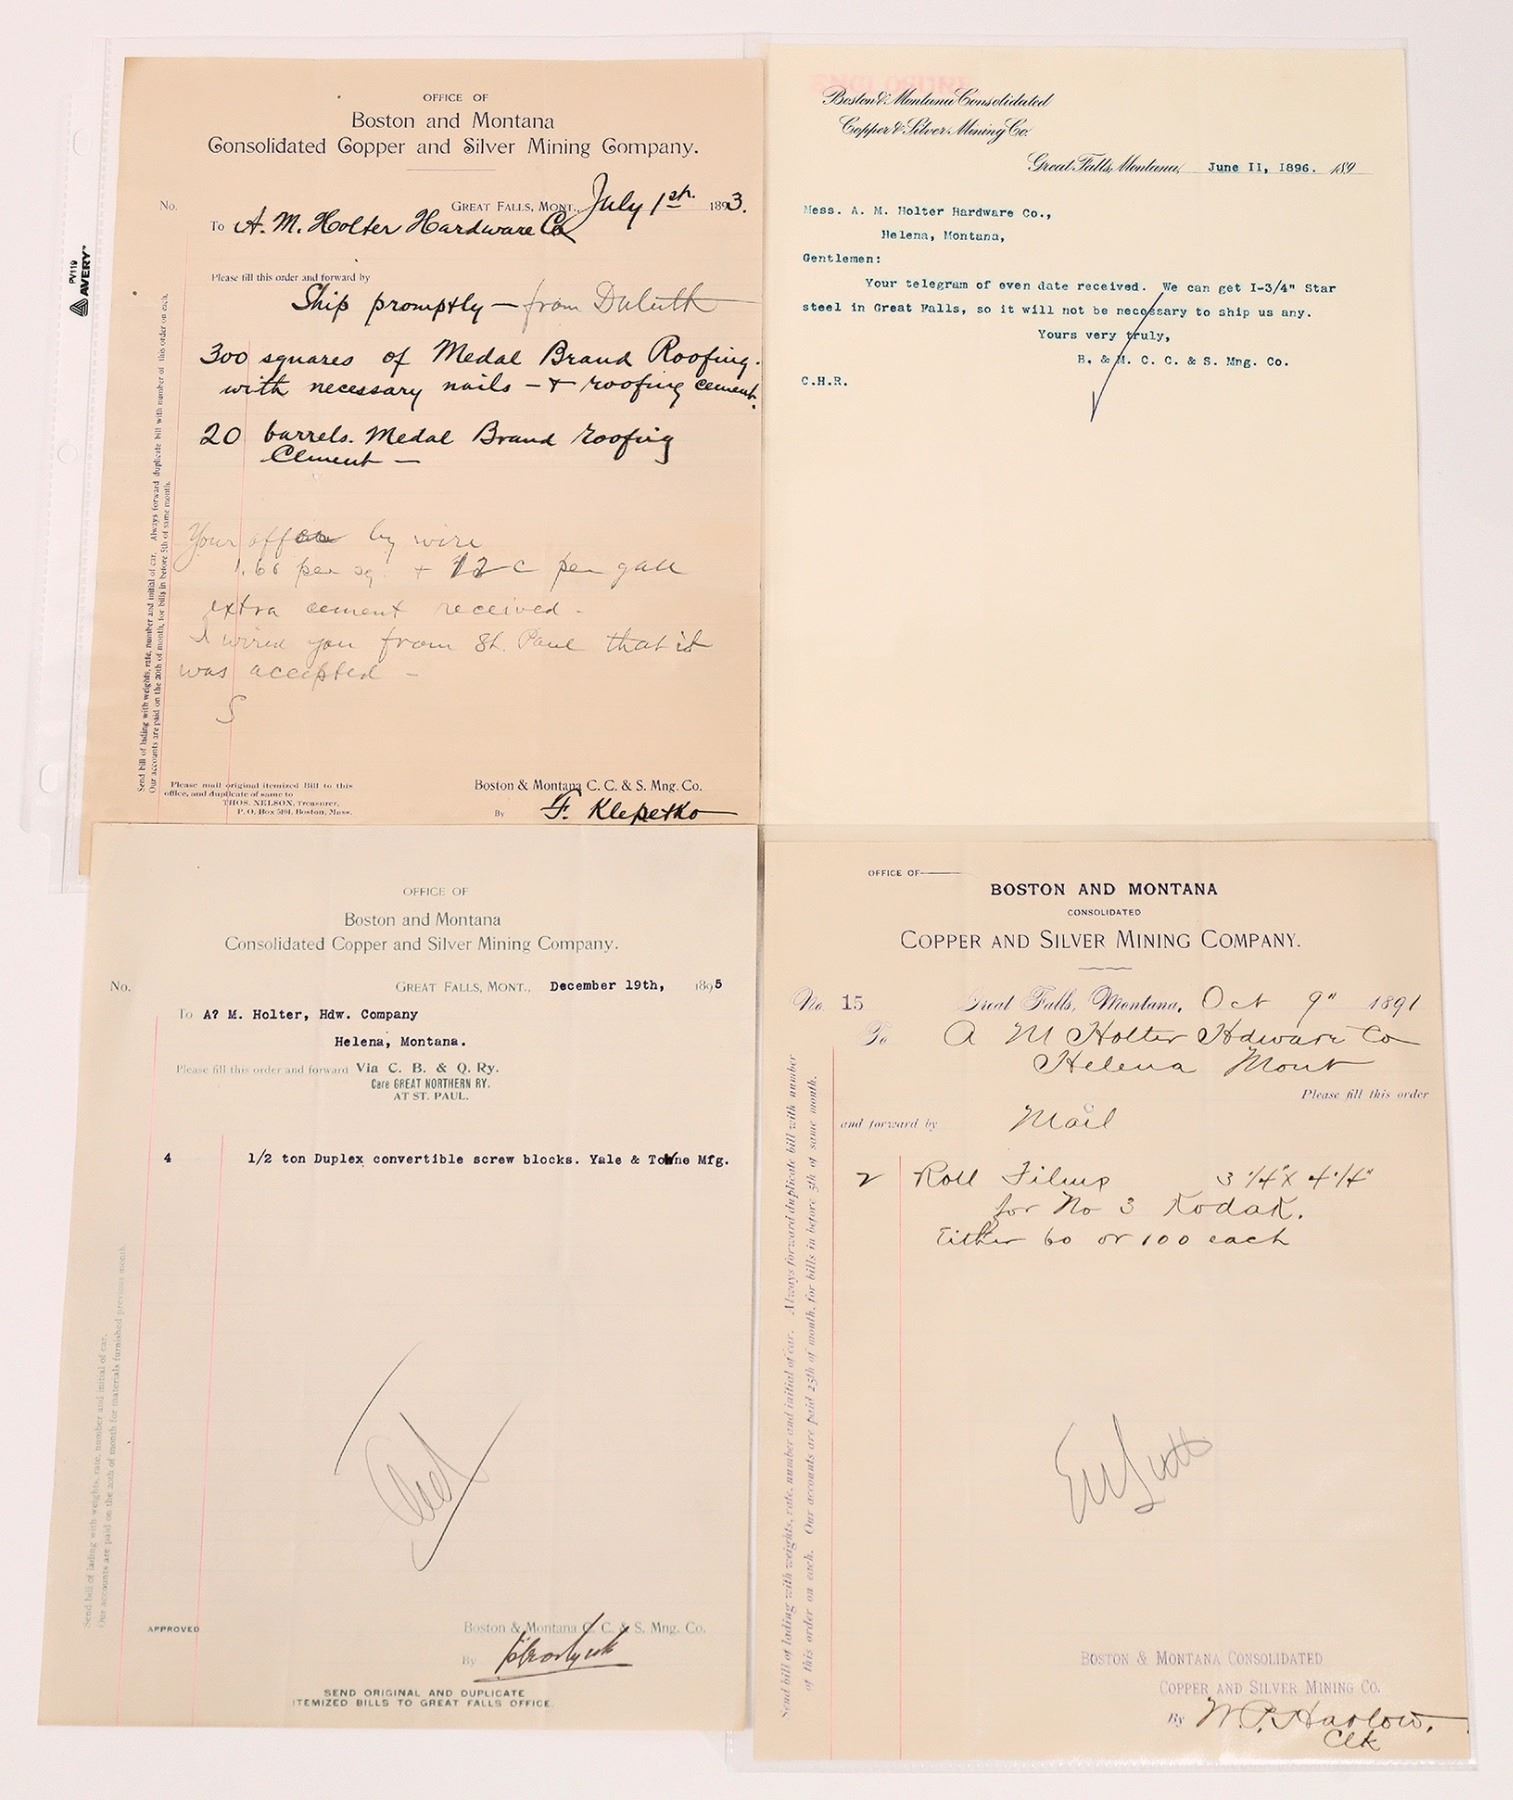 PV119
AVERY
OFFICE OF
Boston and Montana
Consolidated Copper and Silver Mining Company.
No.
GREAT FALLS, MONT., July 1st. 1893.
To A. M. Holter Hardware Co
Please fill this order and forward by
Ship promptly — from Duluth
300 squares of Medal Brand Roofing.
with necessary nails — + roofing cement.
20 barrels. Medal Brand roofing
Cement —
Your by wire
1.66 per sq. + 12 c per gall
extra cement received -
I wired you from St. Paul that it
was accepted -
S
Send bill of lading with weights, rate, number and initial of car. Always forward duplicate bill with number of this order on each.
Our accounts are paid on the 20th of month, for bills in before 5th of same month.
Please mail original itemized Bill to this
office, and duplicate of same to
THOS. NELSON, Treasurer,
P. O. Box 5194, Boston, Mass.
Boston & Montana C. C. & S. Mng. Co.
By F. Klepetko
ENCLOSURE
Boston & Montana Consolidated
Copper & Silver Mining Co.
Great Falls, Montana, June 11, 1896. 189
Mess. A. M. Holter Hardware Co.,
Helena, Montana,
Gentlemen:
Your telegram of even date received. We can get I-3/4" Star
steel in Great Falls, so it will not be necessary to ship us any.
Yours very truly,
B. & M. C. C. & S. Mng. Co.
C.H.R.
OFFICE OF
Boston and Montana
Consolidated Copper and Silver Mining Company.
No.
GREAT FALLS, MONT., December 19th, 1895
To A? M. Holter, Hdw. Company
Helena, Montana.
Please fill this order and forward Via C. B. & Q. Ry.
Care GREAT NORTHERN RY.
AT ST. PAUL.
4 1/2 ton Duplex convertible screw blocks. Yale & Towne Mfg.
Send bill of lading with weights, rate, number and initial of car.
Our accounts are paid on the 20th of month for materials furnished previous month
APPROVED
Boston & Montana C. C. & S. Mng. Co.
By
SEND ORIGINAL AND DUPLICATE
ITEMIZED BILLS TO GREAT FALLS OFFICE.
OFFICE OF
BOSTON AND MONTANA
CONSOLIDATED
COPPER AND SILVER MINING COMPANY.
No. 15 Great Falls, Montana, Oct 9" 1891
To A M Holter Hdware Co
Helena Mont
Please fill this order
and forward by Mail
2 Roll Films 3 1/4" x 4 1/4"
for No 3 Kodak.
Either 60 or 100 each
Send bill of lading with weights, rate, number and initial of car. Always forward duplicate bill with number
of this order on each. Our accounts are paid 25th of month, for bills in before 5th of same month.
BOSTON & MONTANA CONSOLIDATED
COPPER AND SILVER MINING CO.
By W. P. Harlow,
Clk